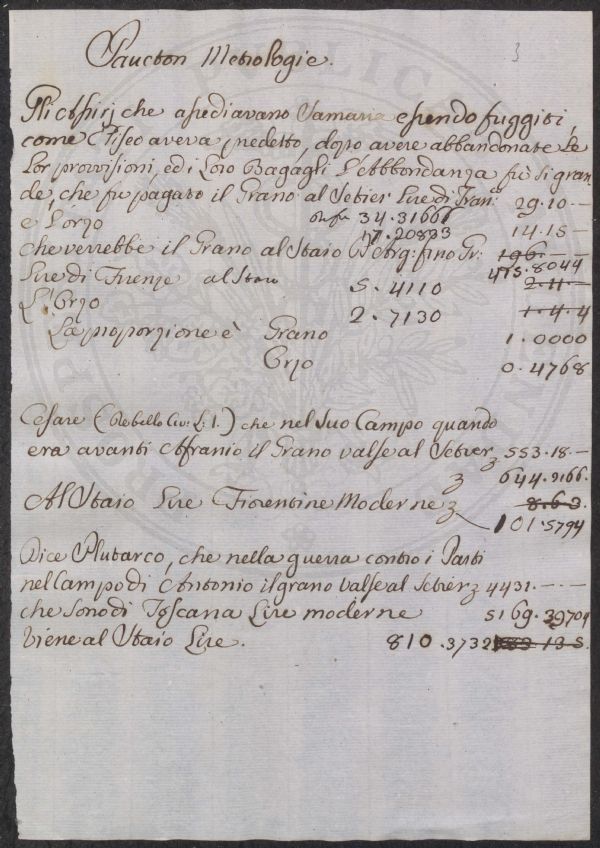 Paucton Metrologie.
3
Gli Assirj che assediavano Samaria essendo fuggiti,
come Eliseo aveva predetto, dopo avere abbandonate Le
Lor provvisioni, ed i Loro Bagagli L'Abbondanza fù sì gran
de, che fu pagato il Grano al Setier Lire di Fran: 29.10 —
34.31666
e L'orzo 14.15 —
17.20833
che verrebbe il Grano al Staio Arg: fino Gr: 196. —
475.8044
Lire di Firenze al Staio 5.4110 2.11 —
L'Orzo 2.7130 1.4.4
La proporzione è Grano 1.0000
Orzo 0.4768
Cesare (De bello Civ: L: 1.) che nel suo Campo quando
era avanti Afranio il Grano valse al Setier 553.18. —
644.9166
Al Staio Lire Fiorentine Moderne 8.6.9.
101.5794
Dice Plutarco, che nella guerra contro i Parti
nel Campo di Antonio il grano valse al Setier 4431. — —
che sono di Toscana Lire moderne 5169.39704
Viene al Staio Lire. 810.3732